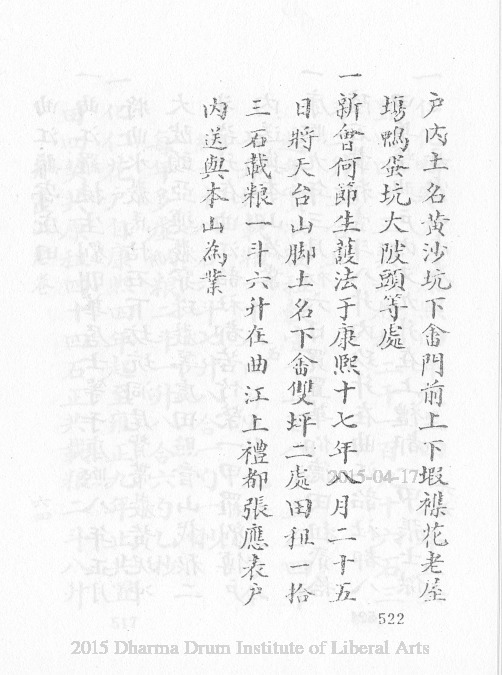 戶內土名黃沙坑下畬門前上下塅襟花老屋
塲鴨蛋坑大陂頭等處
一新會何節生護法于康熙十七年八月二十五
日將天台山脚土名下畬雙坪二處田租一拾
三石載粮一斗六升在曲江上禮都張應表戶
內送與本山為業
2015-04-17
522
2015 Dharma Drum Institute of Liberal Arts